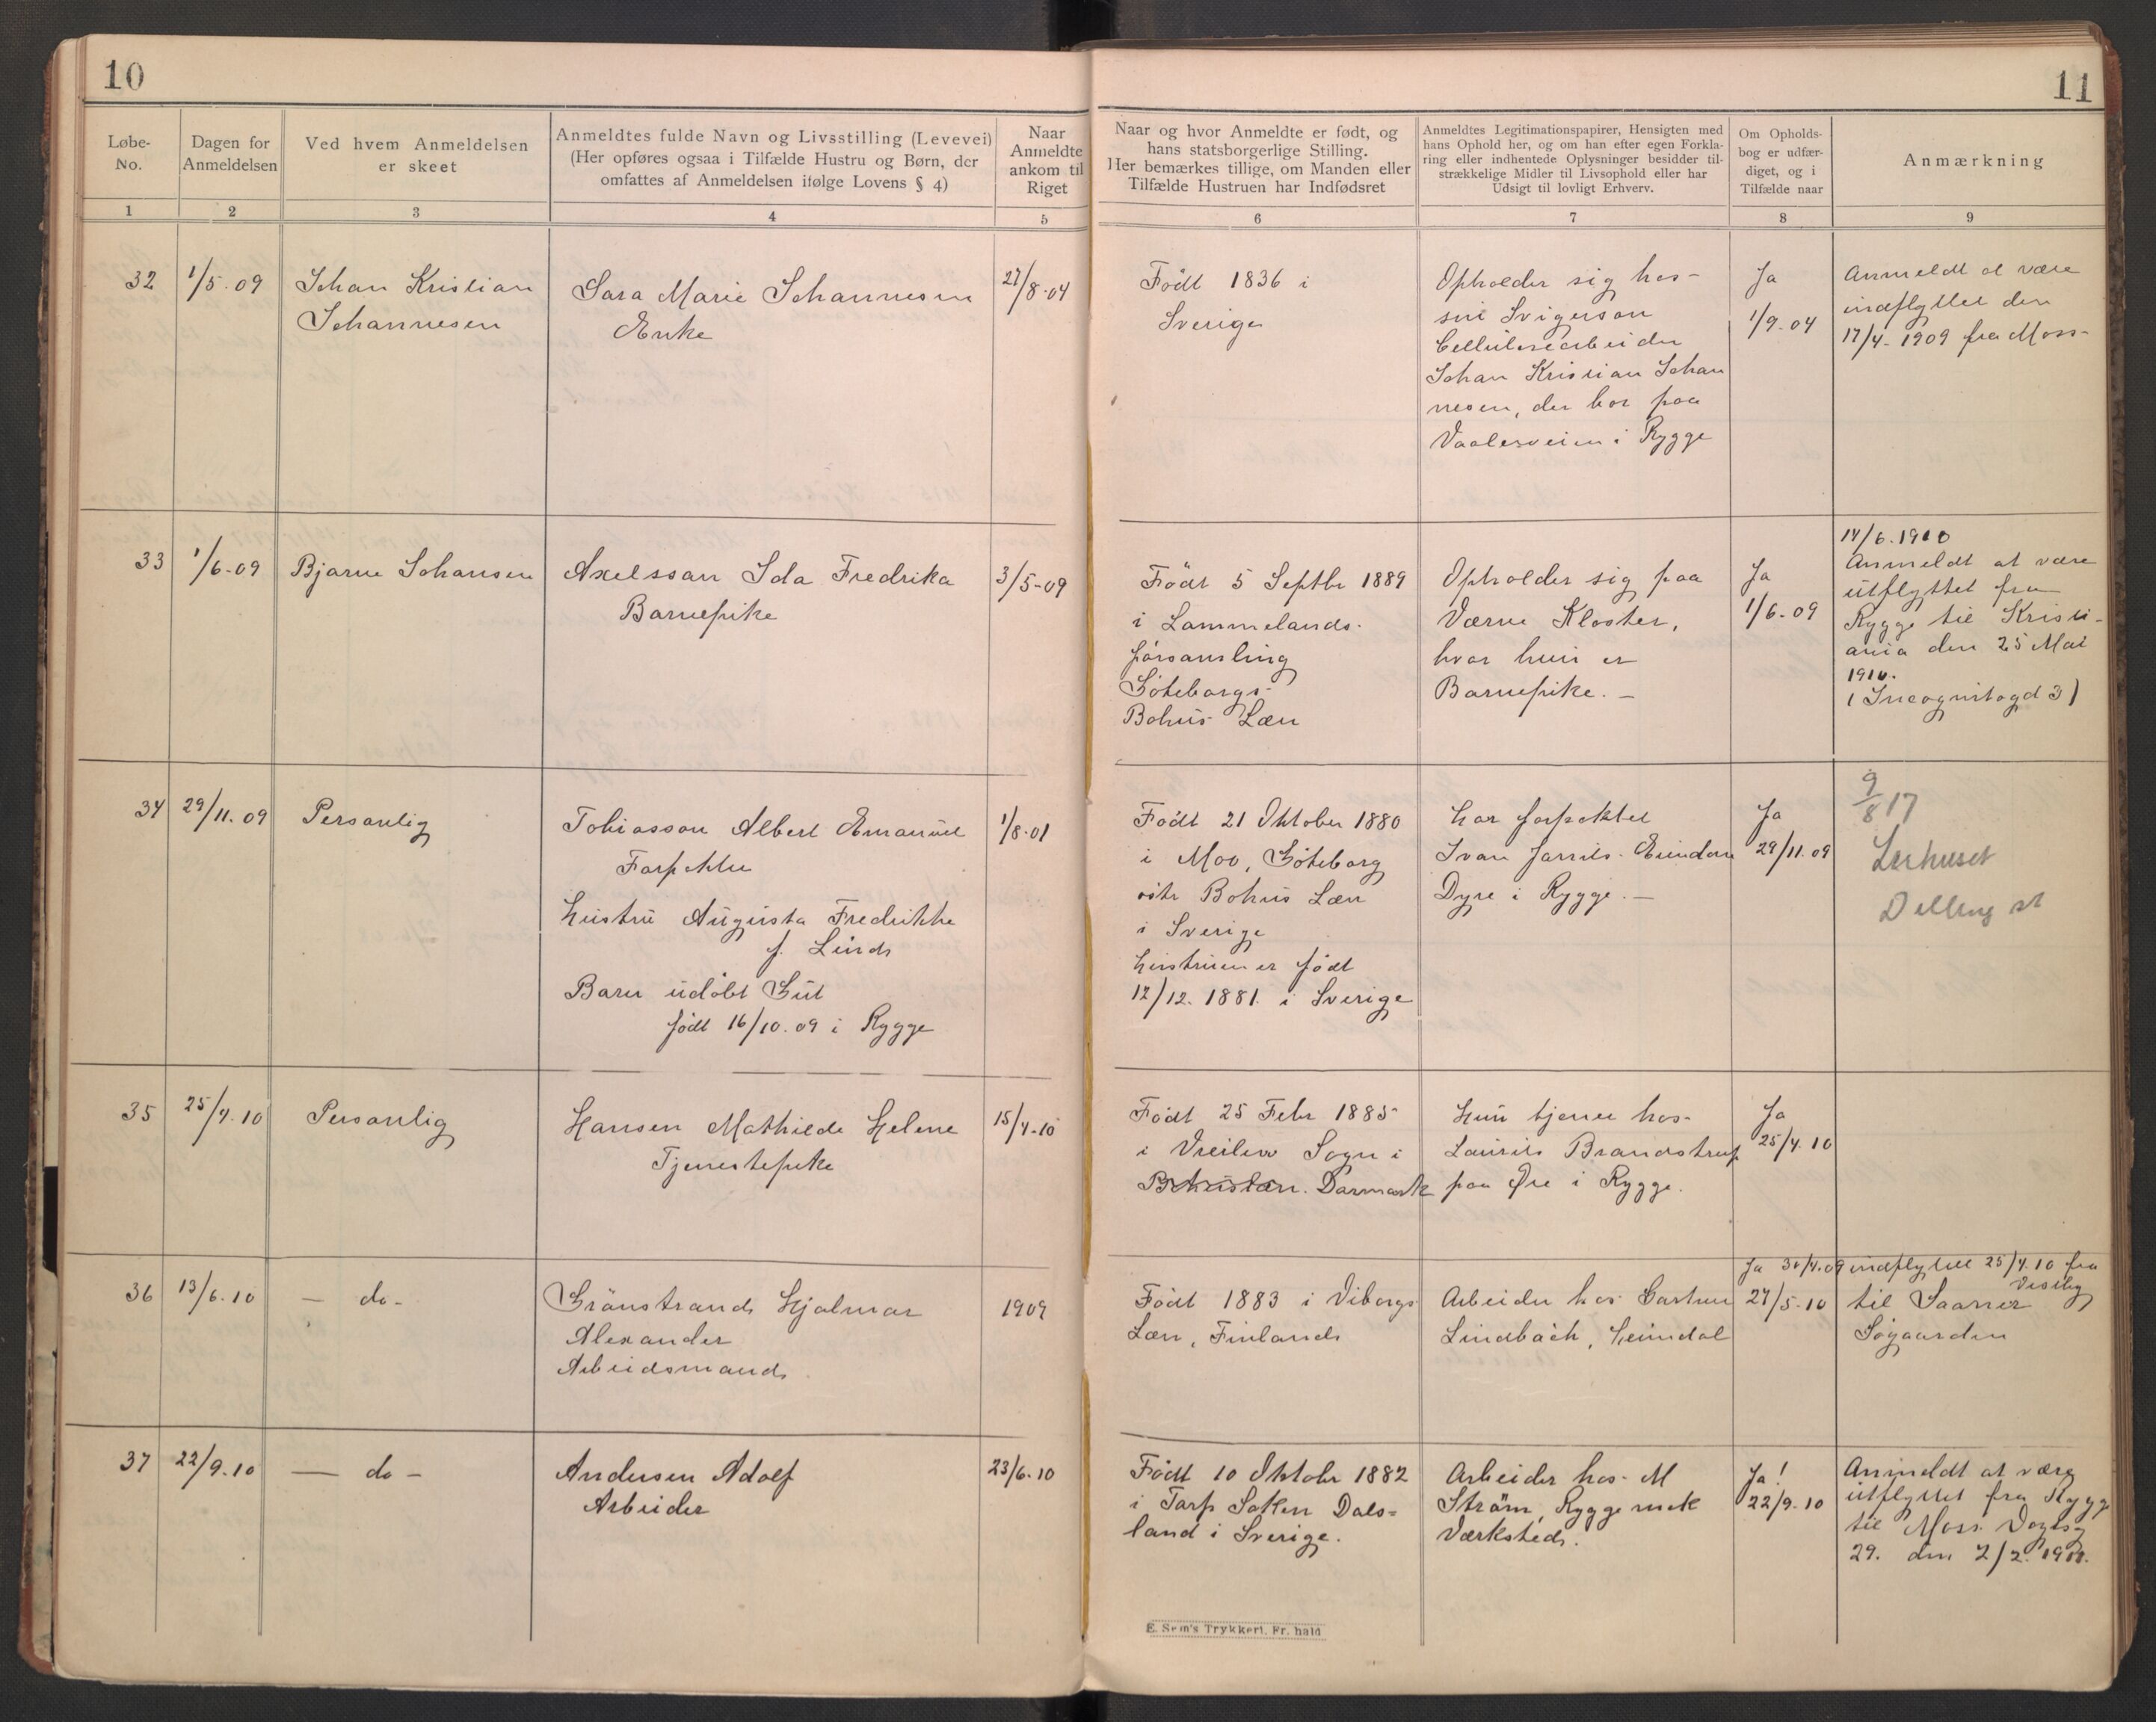 10
11
Løbe-
No.
Dagen for
Anmeldelsen
Ved hvem Anmeldelsen
er skeet
Anmeldtes fulde Navn og Livsstilling (Levevei)
(Her opføres ogsaa i Tilfælde Hustru og Børn, der
omfattes af Anmeldelsen ifølge Lovens § 4)
Naar
Anmeldte
ankom til
Riget
Naar og hvor Anmeldte er født, og
hans statsborgerlige Stilling.
Her bemærkes tillige, om Manden eller
Tilfælde Hustruen har Indfødsret
Anmeldtes Legitimationspapirer, Hensigten med
hans Ophold her, og om han efter egen Forkla-
ring eller indhentede Oplysninger besidder til-
strækkelige Midler til Livsophold eller har
Udsigt til lovligt Erhverv.
Om Opholds-
bog er udfær-
diget, og i
Tilfælde naar
Anmærkning
1
2
3
4
5
6
7
8
9
32
1/5-09
Johan Kristian
Johannesen
Sara Marie Johannesen
Enke
27/8-04
Født 1836 i
Sverige
Opholder sig hos
sin Svigersøn
Cellulosearbeider
Johan Kristian Johan
nesen, der bor paa
Vaalerveien i Rygge
Ja
1/9-04
Anmeldt at være
indflyttet den
17/4-1909 fra Moss
33
1/6-09
Bjarne Johansen
Axelsson Ida Fredrika
Barnepike
3/5-09
Født 5 Septbr 1889
i Lommelands
församling
Göteborgs
Bohus Læn
Opholder sig paa
Værne Kloster,
hvor hun er
Barnepike. -
Ja
1/6-09
14/6.1910
Anmeldt at være
utflyttet fra
Rygge til Kristi-
ania den 25 Mai
1910.
(Incognitogd 3)
34
29/11.09
Personlig
Tobiasson Albert Emanuel
Forpakter
Hustru Augusta Fredrikke
f. Lund
Barn udøbt Gut
født 16/10.09 i Rygge
1/8-01
Født 21 Oktober 1880
i Moo, Göteborg
och Bohus Læn
i Sverige
Hustruen er født
12/12.1881 i Sverige
Har forpaktet
Ivan Eiendom
Dyre i Rygge. -
Ja
29/11.09
9/8 17
Lerhuset
Dilling st
35
25/4.10
Personlig
Hansen Mathilde Helene
Tjenestepike
15/4-10
Født 25 Febr 1885
i Vreilev Sogn i
Bohuslæn. Danmark
Hun tjener hos
Laurits Brandstrup
paa Øre i Rygge.
Ja
25/4.10
36
13/6.10
- do-
Grönstrand Hjalmar
Alexander
Arbeidsmand
1909
Født 1883 i Viborgs
Læn, Finland
Arbeider hos Gartner
Lindbäch, Heimdal
Ja 30/4.09
27/5-10
indflyttet 25/4.10 fra
Visiby
til Saaner
Søgaarden
37
22/9.10
- do -
Andersen Adolf
Arbeider
23/6.10
Født 10 Oktobr 1882
i Tarp Soken Dals=
land i Sverige.
Arbeider hos M
Ström, Rygge mek
Værksted.
Ja!
22/9-10
Anmeldt at være
utflyttet fra Rygge
til Moss
29. den 2/2.1911.
E. Sem's Trykkeri, Fr.hald